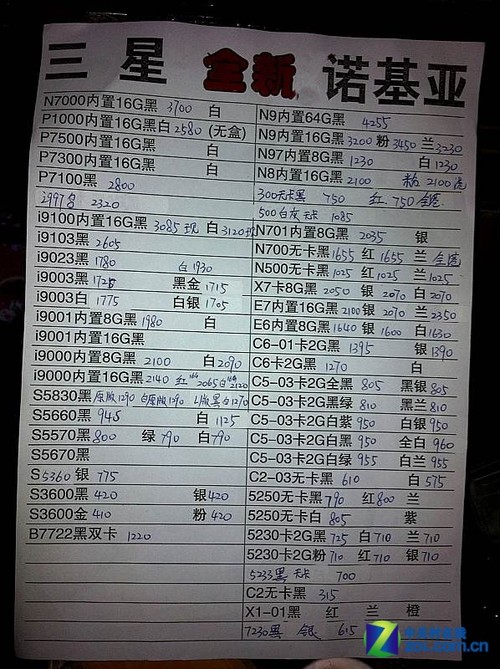 三星 全新 诺基亚
N7000内置16G黑 3700 白
P1000内置16G黑白 2580 (无盒)
P7500内置16G黑 白
P7300内置16G黑 白
P7100黑 2800
i997黑 2320
i9100内置16G黑 3085 现 白 3120 现
i9103黑 2605
i9023黑 1780 白 1930
i9003黑 黑金 1715
i9003白 1775 白银 1705
i9001内置8G黑 1980 白
i9001内置16G黑
i9000内置8G黑 2100 白 2090
i9000内置16G黑 2140 红 2065 白 2120
S5830黑 原版1290 白原版1390 黑白1270
S5660黑 945 白 1125
S5570黑 800 绿 790 白 790
S5670黑
S5360 银 775
S3600黑 420 银 420
S3600金 410 粉 420
B7722黑双卡 1220
N9内置64G黑 4255
N9内置16G黑 3200 粉 3450 兰 3230
N97内置8G黑 1230 白 1230
N8内置16G黑 2100 2100
300无卡黑 750 红 750
500白灰无卡 1085
N701内置8G黑 2035 银
N700无卡黑 1655 红 1655 兰
N500无卡黑 1025 红 1025 兰 1025
X7卡8G黑 2050 银 2070 白 2070
E7内置16G黑 2100 银 2070 兰 2350
E6内置8G黑 1640 银 1600 白 1630
C6-01卡2G黑 1395 银 1390
C6卡2G黑 1270 白
C5-03卡2G全黑 805 黑银 805
C5-03卡2G黑绿 810 黑兰 810
C5-03卡2G白紫 950 白银 950
C5-03卡2G白黑 950 全白 960
C5-03卡2G白绿 955 白兰 955
C2-03无卡黑 610 白 575
5250无卡黑 790 红 800 兰
5250无卡白 805 紫
5230卡2G黑 725 白 710 兰 710
5230卡2G粉 710 红 710 银 710
5233黑无卡 700
C2无卡黑 315
X1-01黑 红 兰 橙
7230黑 银 615